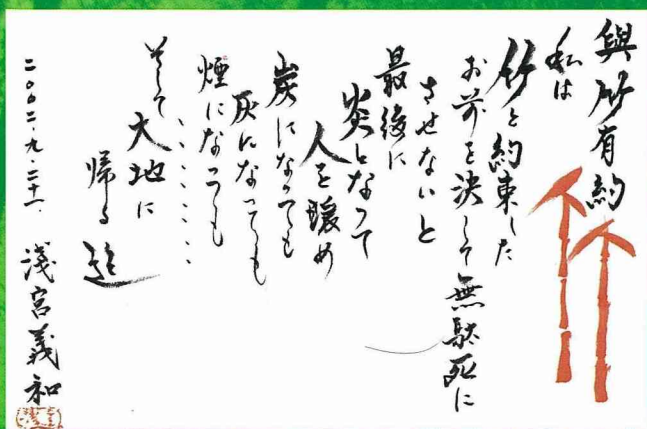 與竹有約
私は
竹と約束した
お前を決して無駄死に
させないと
最後に
炎となって
人を暖め
炭になっても
灰になっても
煙になっても
、、、、、、、
そして大地に
帰る迄
二〇〇二、九、二十一、
淺宮義和